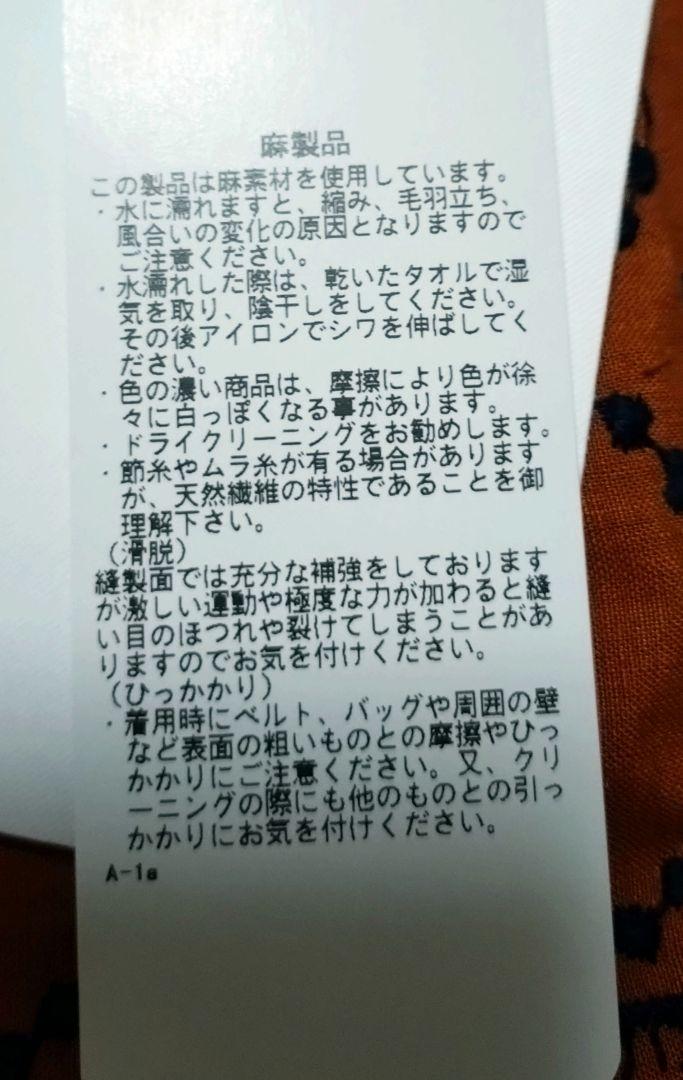 麻製品
この製品は麻素材を使用しています。
・水に濡れますと、縮み、毛羽立ち、
風合いの変化の原因となりますので
ご注意ください。
・水濡れした際は、乾いたタオルで湿
気を取り、陰干しをしてください。
その後アイロンでシワを伸ばしてく
ださい。
・色の濃い商品は、摩擦により色が徐
々に白っぽくなる事があります。
・ドライクリーニングをお勧めします。
・節糸やムラ糸が有る場合があります
が、天然繊維の特性であることを御
理解下さい。
（滑脱）
縫製面では充分な補強をしております
が激しい運動や極度な力が加わると縫
い目のほつれや裂けてしまうことがあ
りますのでお気を付けください。
（ひっかかり）
・着用時にベルト、バッグや周囲の壁
など表面の粗いものとの摩擦やひっ
かかりにご注意ください。又、クリ
ーニングの際にも他のものとの引っ
かかりにお気を付けください。
A-1a